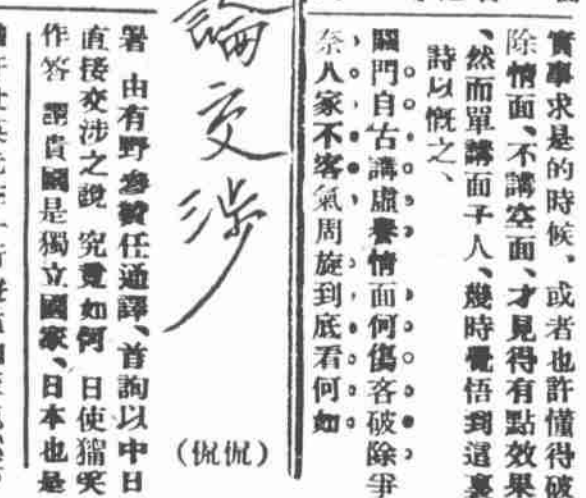 實事求是的時候、或者也許懂得破
除情面、不講空面、才見得有點效果
、然而單講面子人、幾時覺悟到這裏
詩以慨之、
關門自古講虛譽情面何傷客破除爭
奈人家不客氣周旋到底看何如
論交涉
(侃侃)
署 由有野參贊任通譯、首詢以中日
直接交涉之說 究竟如何 日使獰笑
作答 謂貴國是獨立國家、日本也是